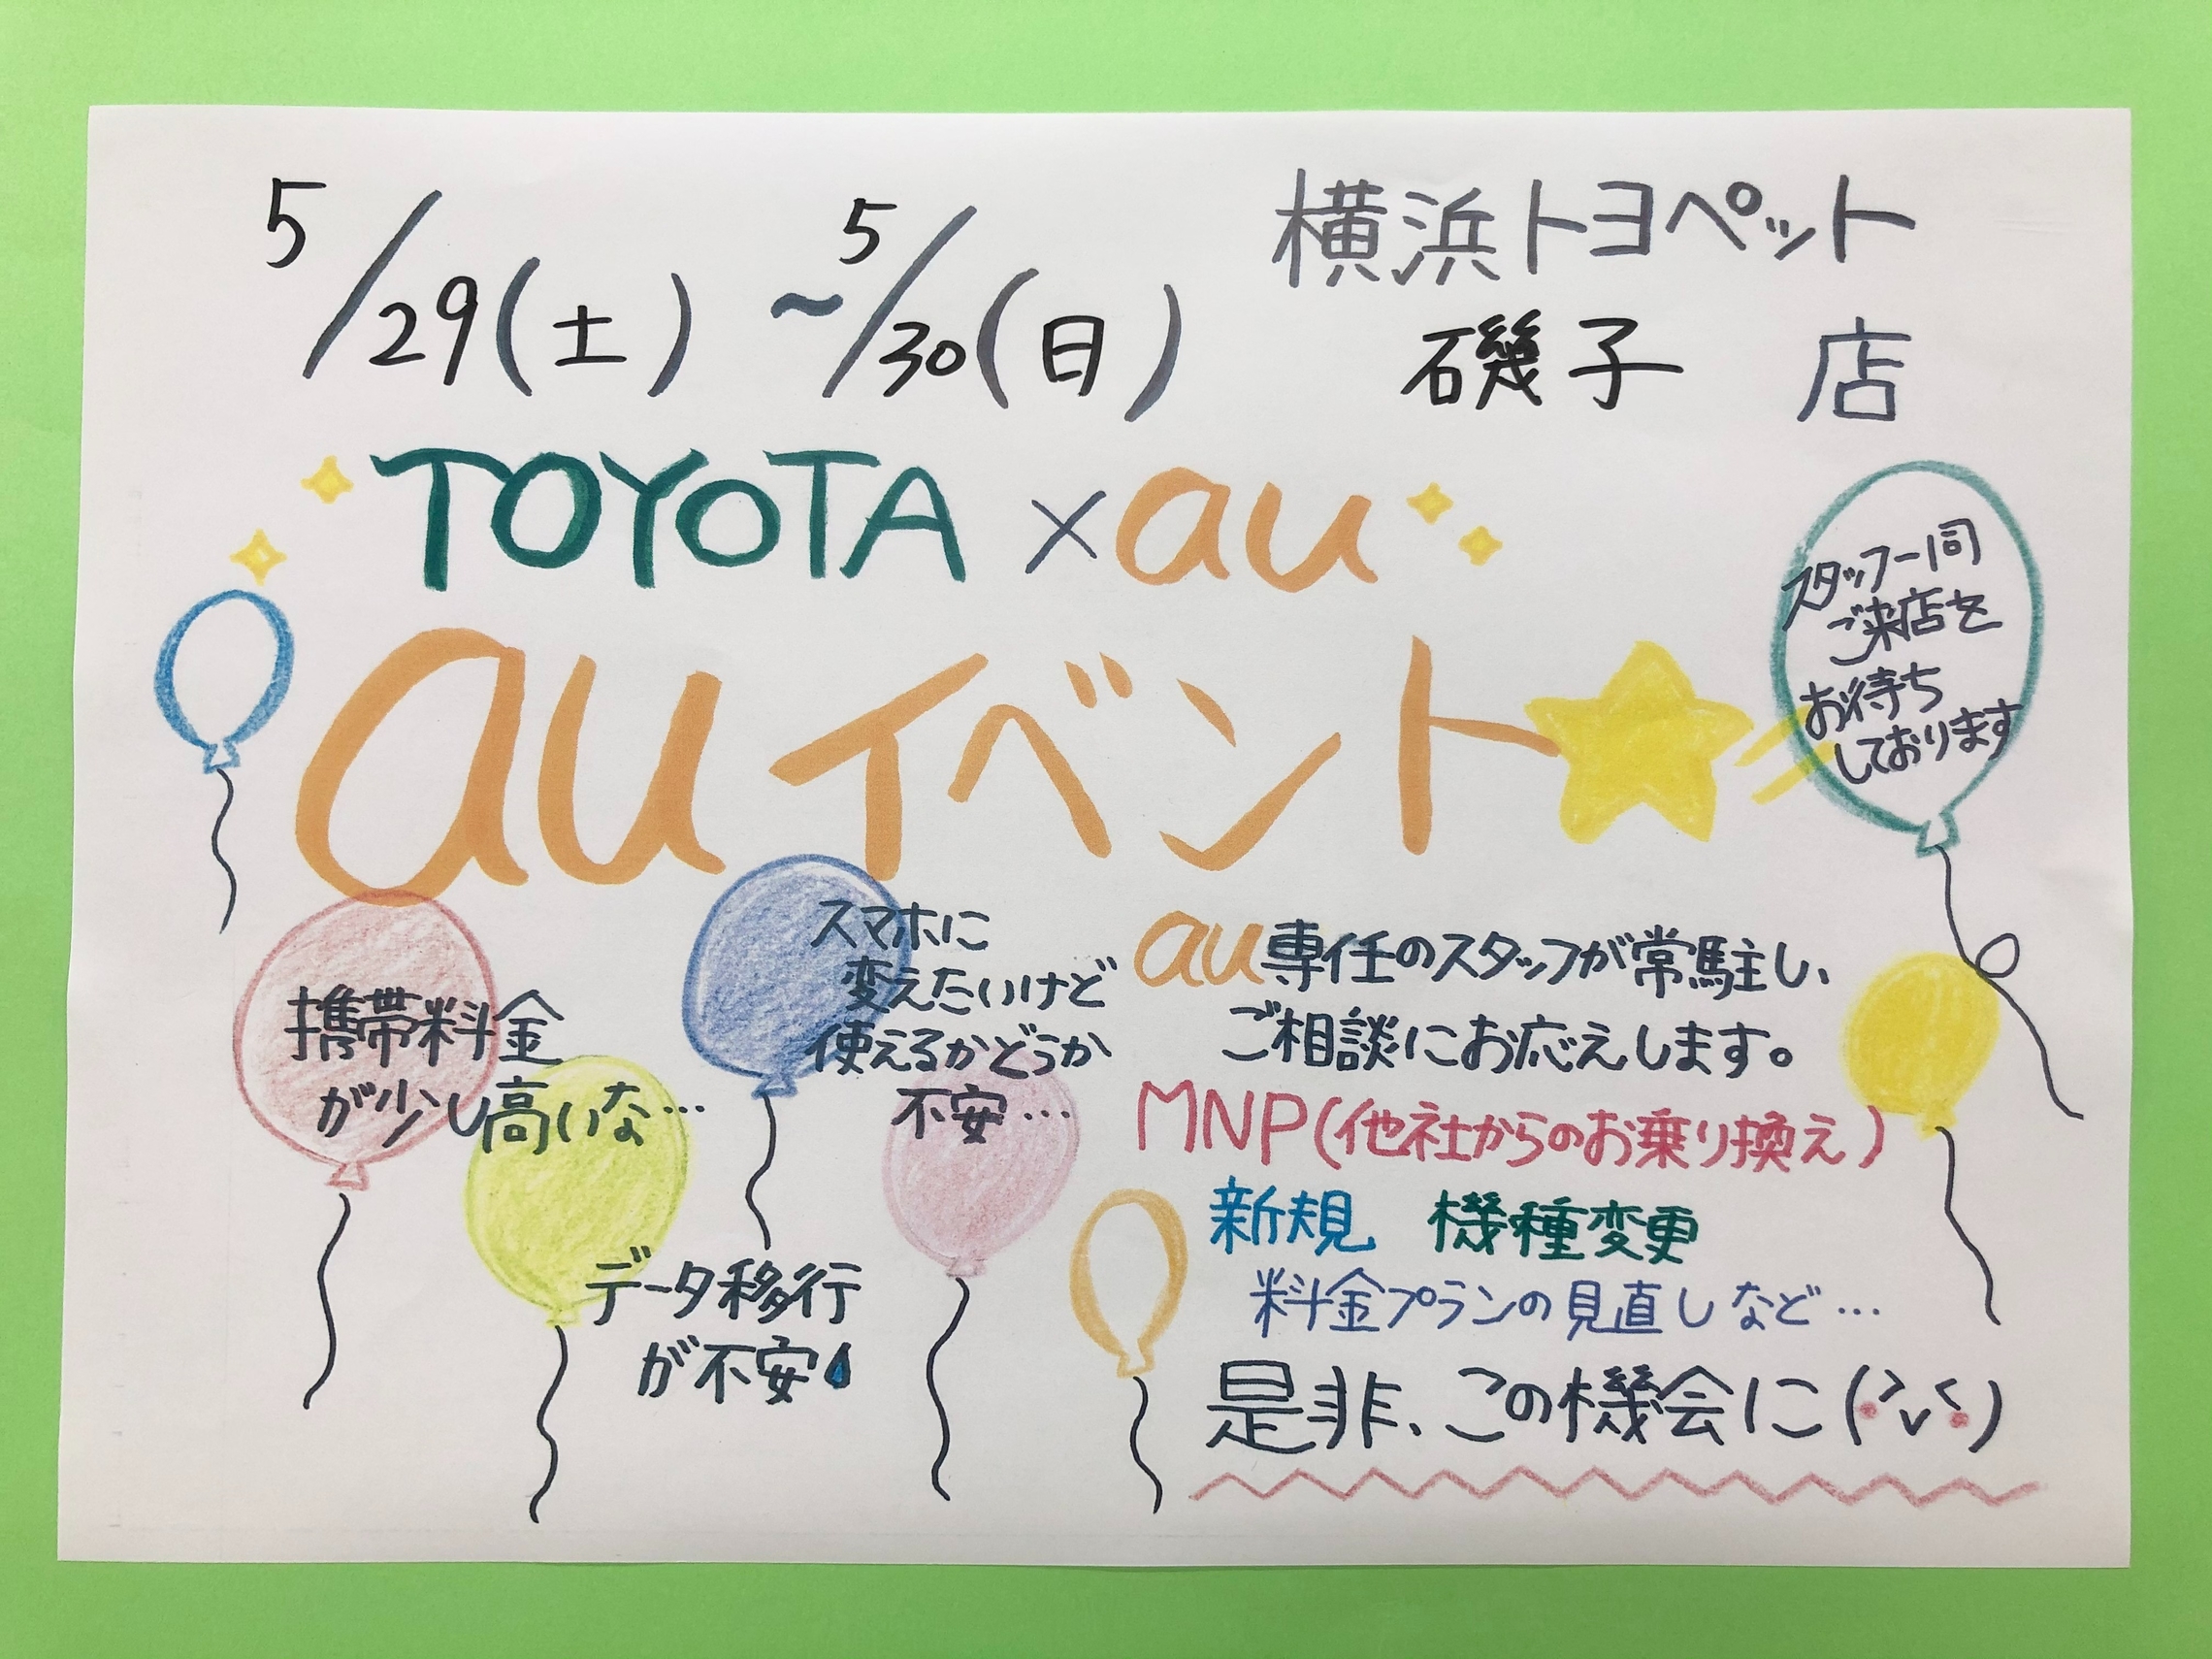 5/29(土) ~ 5/30(日)
横浜トヨペット
磯子 店
TOYOTA × au
auイベント
スタッフ一同
ご来店を
お待ち
しております
携帯料金
が少し高いな…
スマホに
変えたいけど
使えるかどうか
不安…
データ移行
が不安
au専任のスタッフが常駐し、
ご相談にお応えします。
MNP(他社からのお乗り換え)
新規 機種変更
料金プランの見直しなど…
是非、この機会に(>v<)